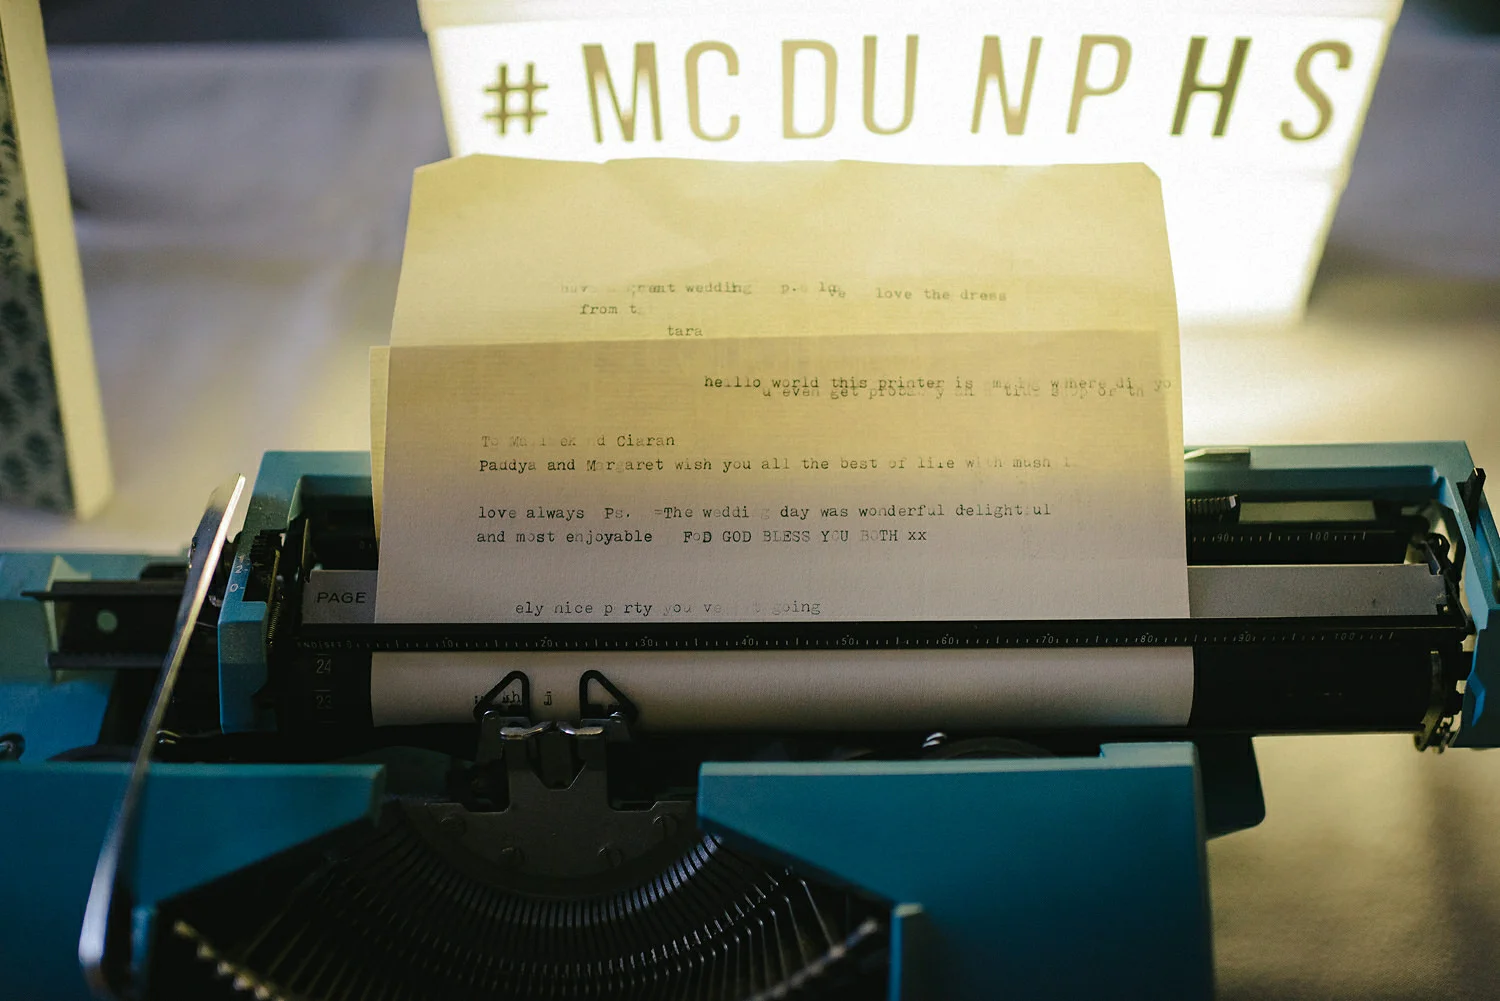 #MCDUNPHS
wedding p.s love love the dress
from
tara
helllo world this printer is where di yo
u even get
To Ciaran
Paddya and Margaret wish you all the best of life with mush
love always Ps. =The wedding day was wonderful delightful
and most enjoyable FoD GOD BLESS YOU BOTH xx
ely nice party you ve going
j
PAGE
10 20 30 40 50 60 70 80 90 100
24
23
90 100